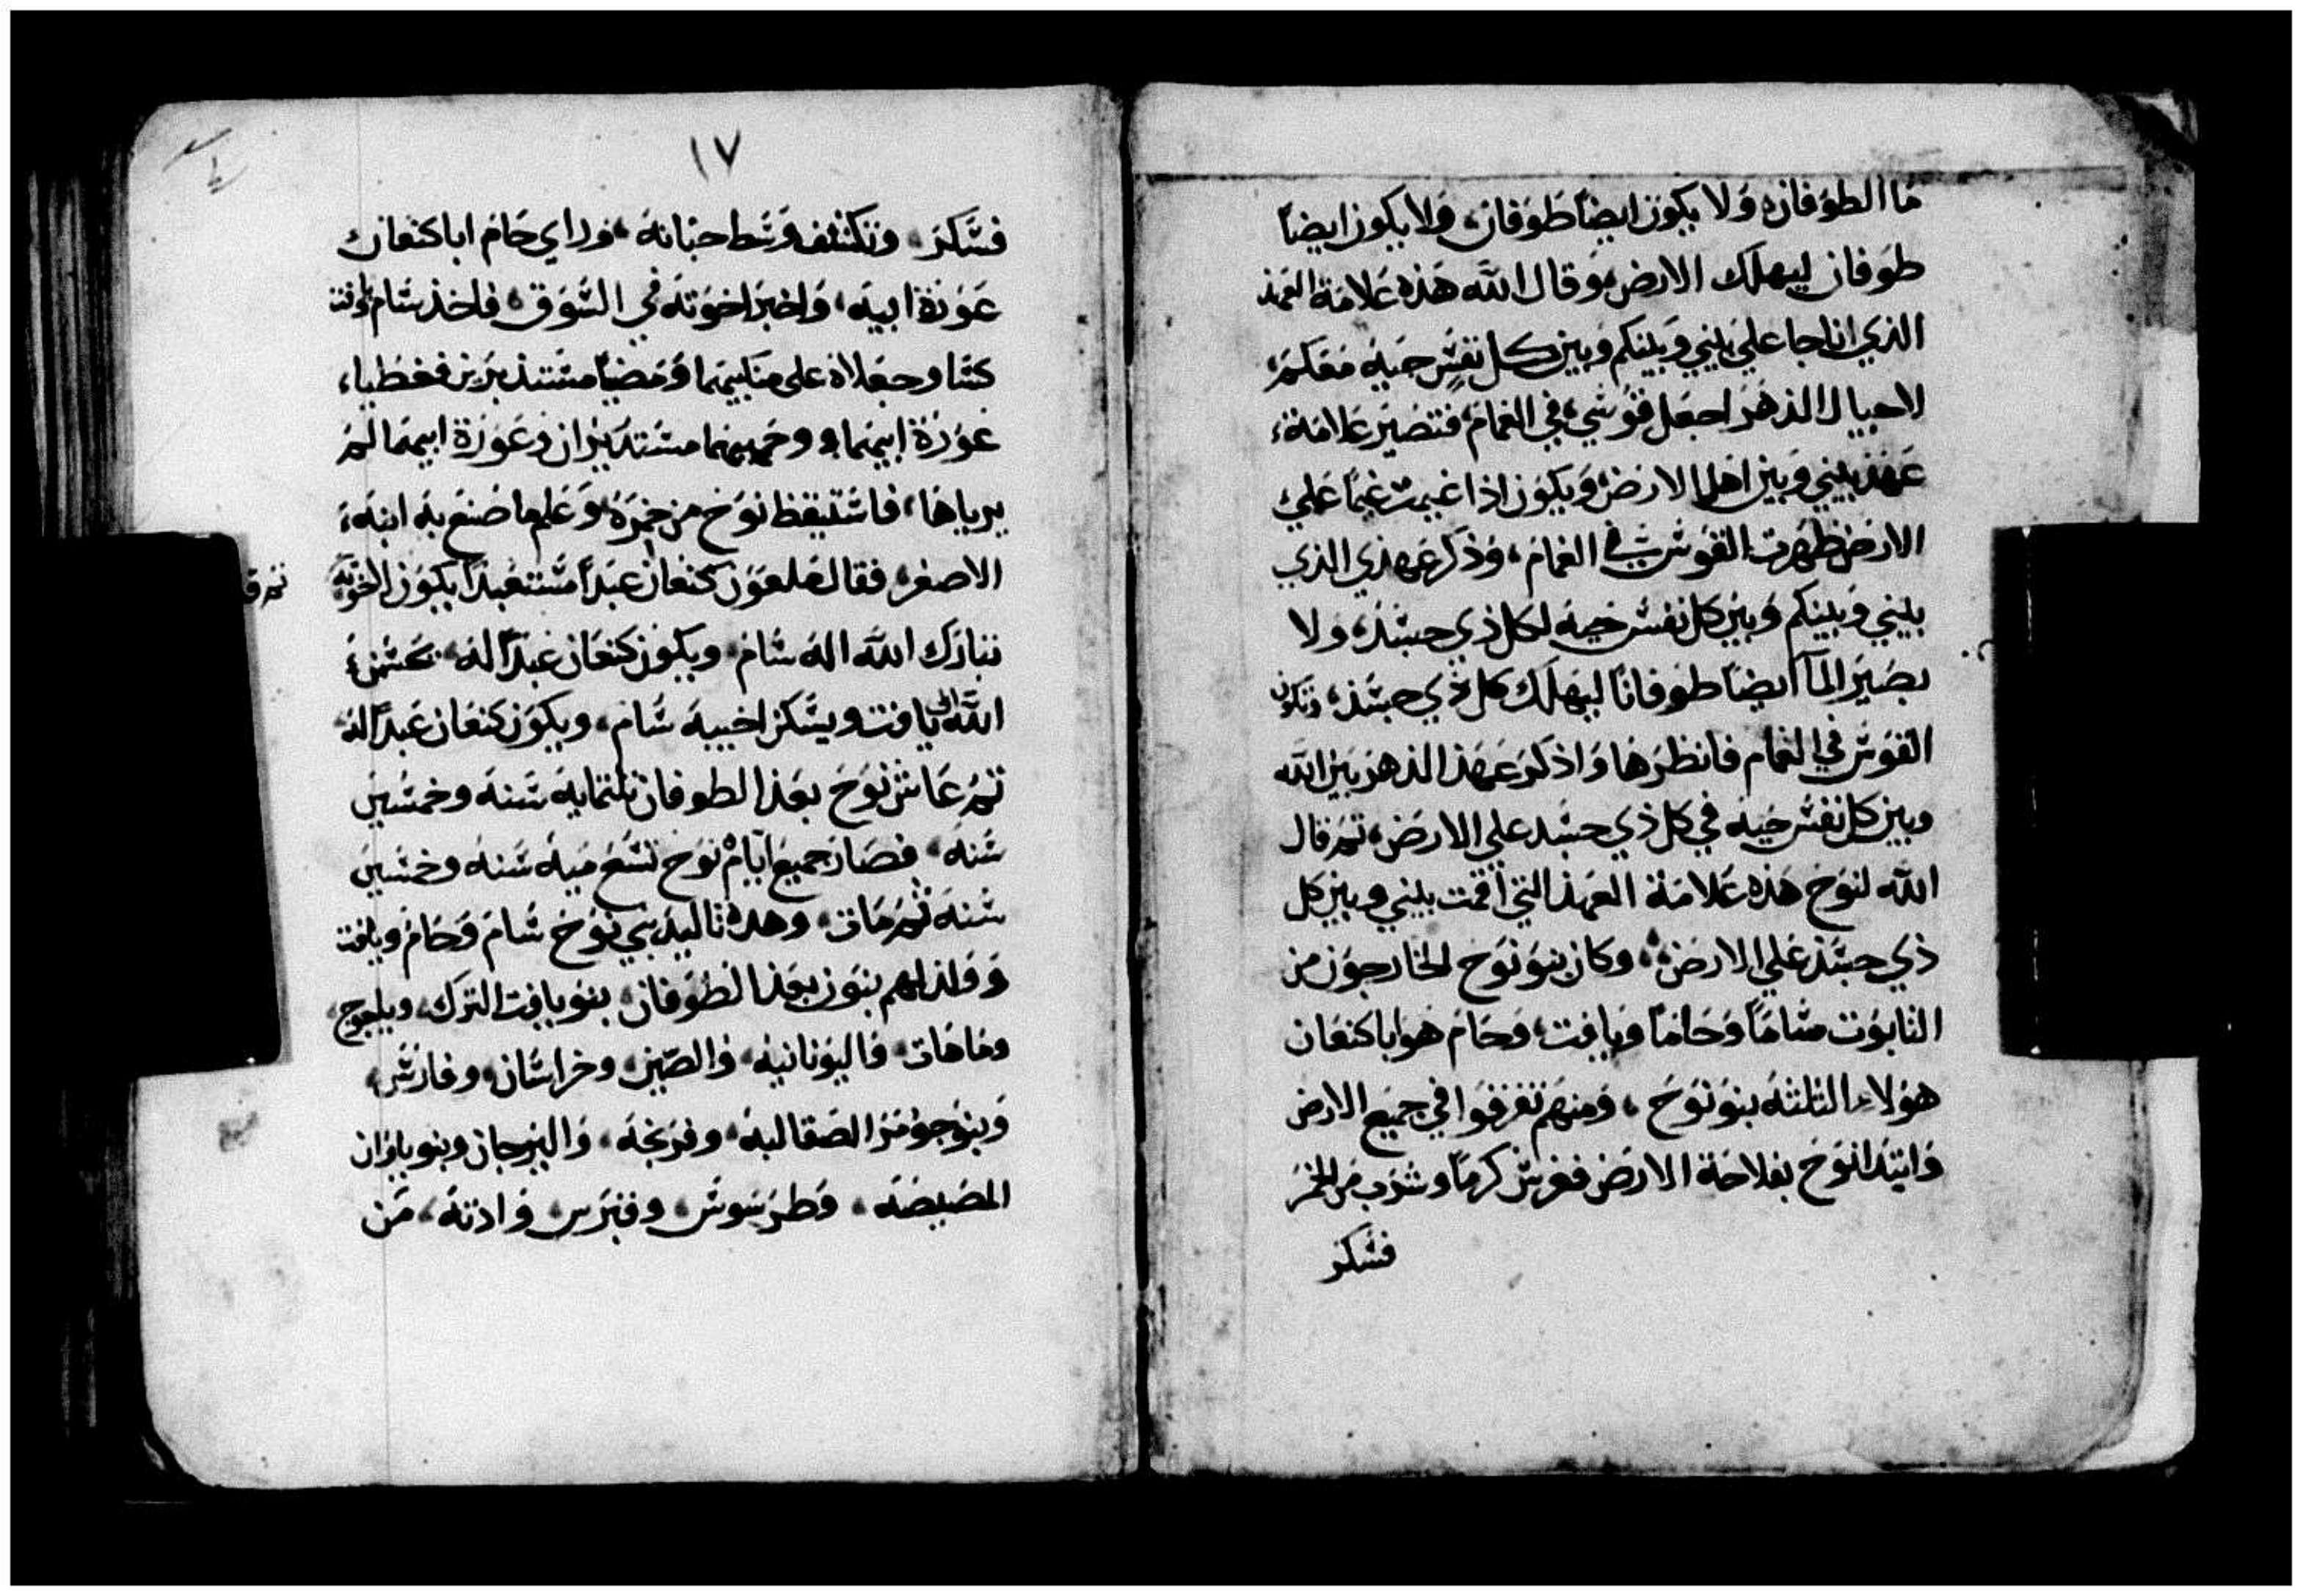 ما الطوفان، ولا يكون ايضاً طوفان، ولا يكون ايضاً
طوفان ليهلك الارض، وقال الله هذه علامة العهد
الذي انا جاعل بيني وبينكم وبين كل نفس حيه معكم،
لاجيال الدهر اجعل قوسي، في الغمام، فتصير علامة،
عهد بيني وبين اهل الارض، ويكون اذا غيمت غيماً علي
الارض ظهرت القوس في الغمام، وذكر عهدي الذي
بيني وبينكم وبين كل نفس حيه لكل ذي جسد، ولا
يصير الماَ ايضاً طوفاناً ليهلك كل ذي جسد، وتكون
القوس في الغمام فانظرها واذكر عهد الدهر بين الله
وبين كل نفس حيه في كل ذي جسد علي الارض، ثم قال
الله لنوح هذه علامة العهد التي اقمت بيني وبين كل
ذي جسد علي الارض، وكان بنو نوح الخارجون من
التابوت ساماً وحاماً ويافت، وحام هو ابا كنعان
هولاء الثلثه بنو نوح، ومنهم تفرقوا في جميع الارض
وابتدا نوح بفلاحة الارض فغرس كرماً وشرب من الخمر
فسكر
١٧
فسكر، وتكشف وسط خبائه، وراي حام ابا كنعان
عورة ابيه، واخبر اخوته في السوق، فاخذ سام ويافت
كسا وجعلاه على منكبيهما ومضيا مستدبرين فغطيا،
عورة ابيهما، ووجهيهما مستديران وعورة ابيهما لم
يرياها، فاستيقظ نوح من خمره وعلم ما صنع به ابنه،
الاصغر، فقال ملعون كنعان عبداً مستعبداً يكون لاخوته
تبارك الله اله سام، ويكون كنعان عبداً له، يحسن
الله الى يافت ويسكن اخبيه سام، ويكون كنعان عبداً له
ثم عاش نوح بعد الطوفان ثلثمايه سنه وخمسين
سنه، فصار جميع ايام نوح تسع ميه سنه وخمسين
سنه ثم مات، وهذه تاليد بني نوح سام وحام ويافت
وولد لهم بنون بعد الطوفان، بنو يافت الترك، وياجوج،
وماهات، واليونانيه، والصين، وخراسان، وفارس،
وبنو جومر الصقالبه، وفرنجه، والبرجان وبنو ياوان
المصيصه، وطرسوس، وقبرس، وادنه، من